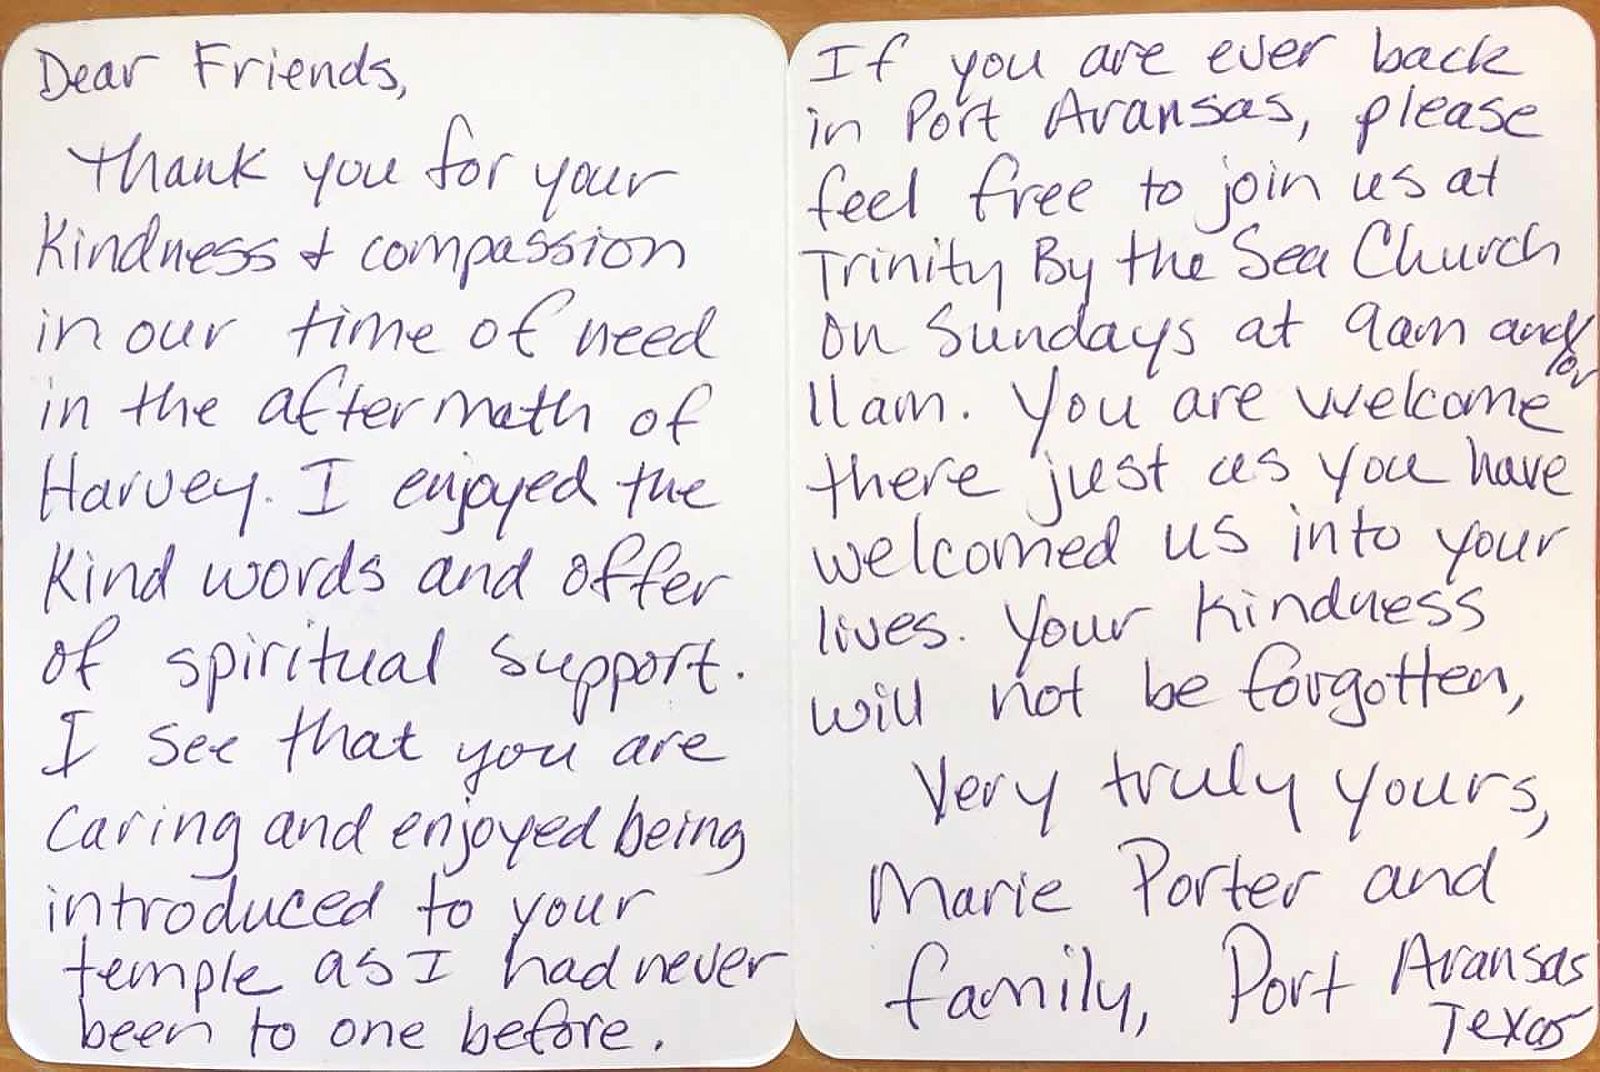 Dear Friends,
Thank you for your
Kindness & compassion
in our time of need
in the aftermath of
Harvey. I enjoyed the
Kind words and offer
of spiritual support.
I see that you are
caring and enjoyed being
introduced to your
temple as I had never
been to one before.
If you are ever back
in Port Aransas, please
feel free to join us at
Trinity By the Sea Church
on Sundays at 9am and/or
11am. You are welcome
there just as you have
welcomed us into your
lives. Your kindness
will not be forgotten,
Very truly yours,
Marie Porter and
family, Port Aransas
Texas